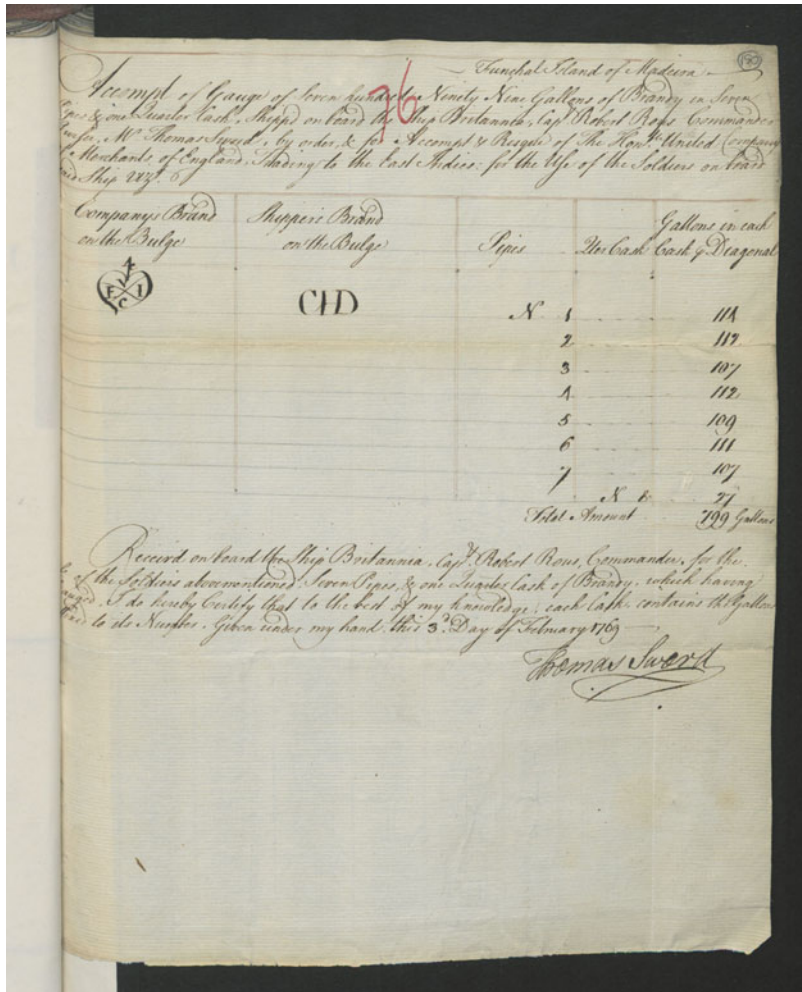 Funchal Island of Madeira
76
Accompt of Gauge of Seven hundred Ninety Nine Gallons of Brandy in Seven
Pipes & one Quarter Cask, Shipp'd on board the Ship Britannia, Cap.t Robert Rous Commander
Purser, Mr Thomas Sword, by order, & for Accompt & Resque of The Hon.ble United Company
of Merchants of England, Trading to the East Indies: for the Use of the Soldiers on board
said Ship vizt.
Companys Brand
on the Bulge
Shippers Brand
on the Bulge
Pipes
Qter Cask
Gallons in each
Cask & Diagonal
F C I
CHD
N 1 114
2 112
3 107
4 112
5 109
6 111
7 107
N 8 27
Total Amount 799 Gallons
Receivd on board the Ship Britannia, Capt. Robert Rous, Commander, for the
the Soldiers abovementioned, Seven Pipes, & one Quarter Cask of Brandy, which having
I do hereby Certify that to the best of my knowledge, each Cask, contains the Gallons
to its Number. Given under my hand, this 3d. Day of February 1769
Thomas Sword